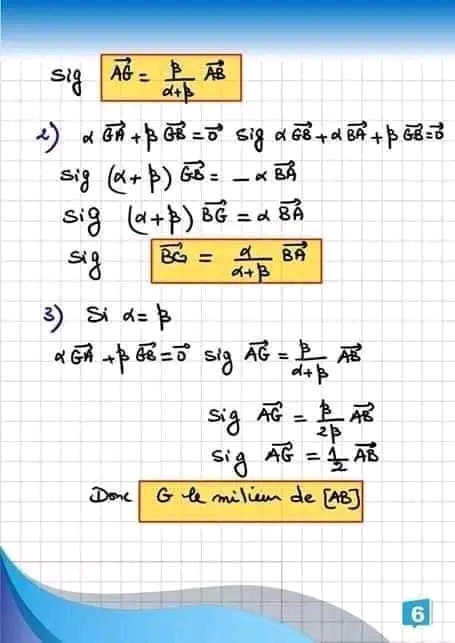 sig $\overrightarrow{AG} = \frac{\beta}{\alpha+\beta} \overrightarrow{AB}$
2) $\alpha \overrightarrow{GA} + \beta \overrightarrow{GB} = \vec{0}$ sig $\alpha \overrightarrow{GB} + \alpha \overrightarrow{BA} + \beta \overrightarrow{GB} = \vec{0}$
sig $(\alpha + \beta) \overrightarrow{GB} = - \alpha \overrightarrow{BA}$
sig $(\alpha + \beta) \overrightarrow{BG} = \alpha \overrightarrow{BA}$
sig $\overrightarrow{BG} = \frac{\alpha}{\alpha+\beta} \overrightarrow{BA}$
3) Si $\alpha = \beta$
$\alpha \overrightarrow{GA} + \beta \overrightarrow{GB} = \vec{0}$ sig $\overrightarrow{AG} = \frac{\beta}{\alpha+\beta} \overrightarrow{AB}$
sig $\overrightarrow{AG} = \frac{\beta}{2\beta} \overrightarrow{AB}$
sig $\overrightarrow{AG} = \frac{1}{2} \overrightarrow{AB}$
Donc G le milieu de [AB]
6